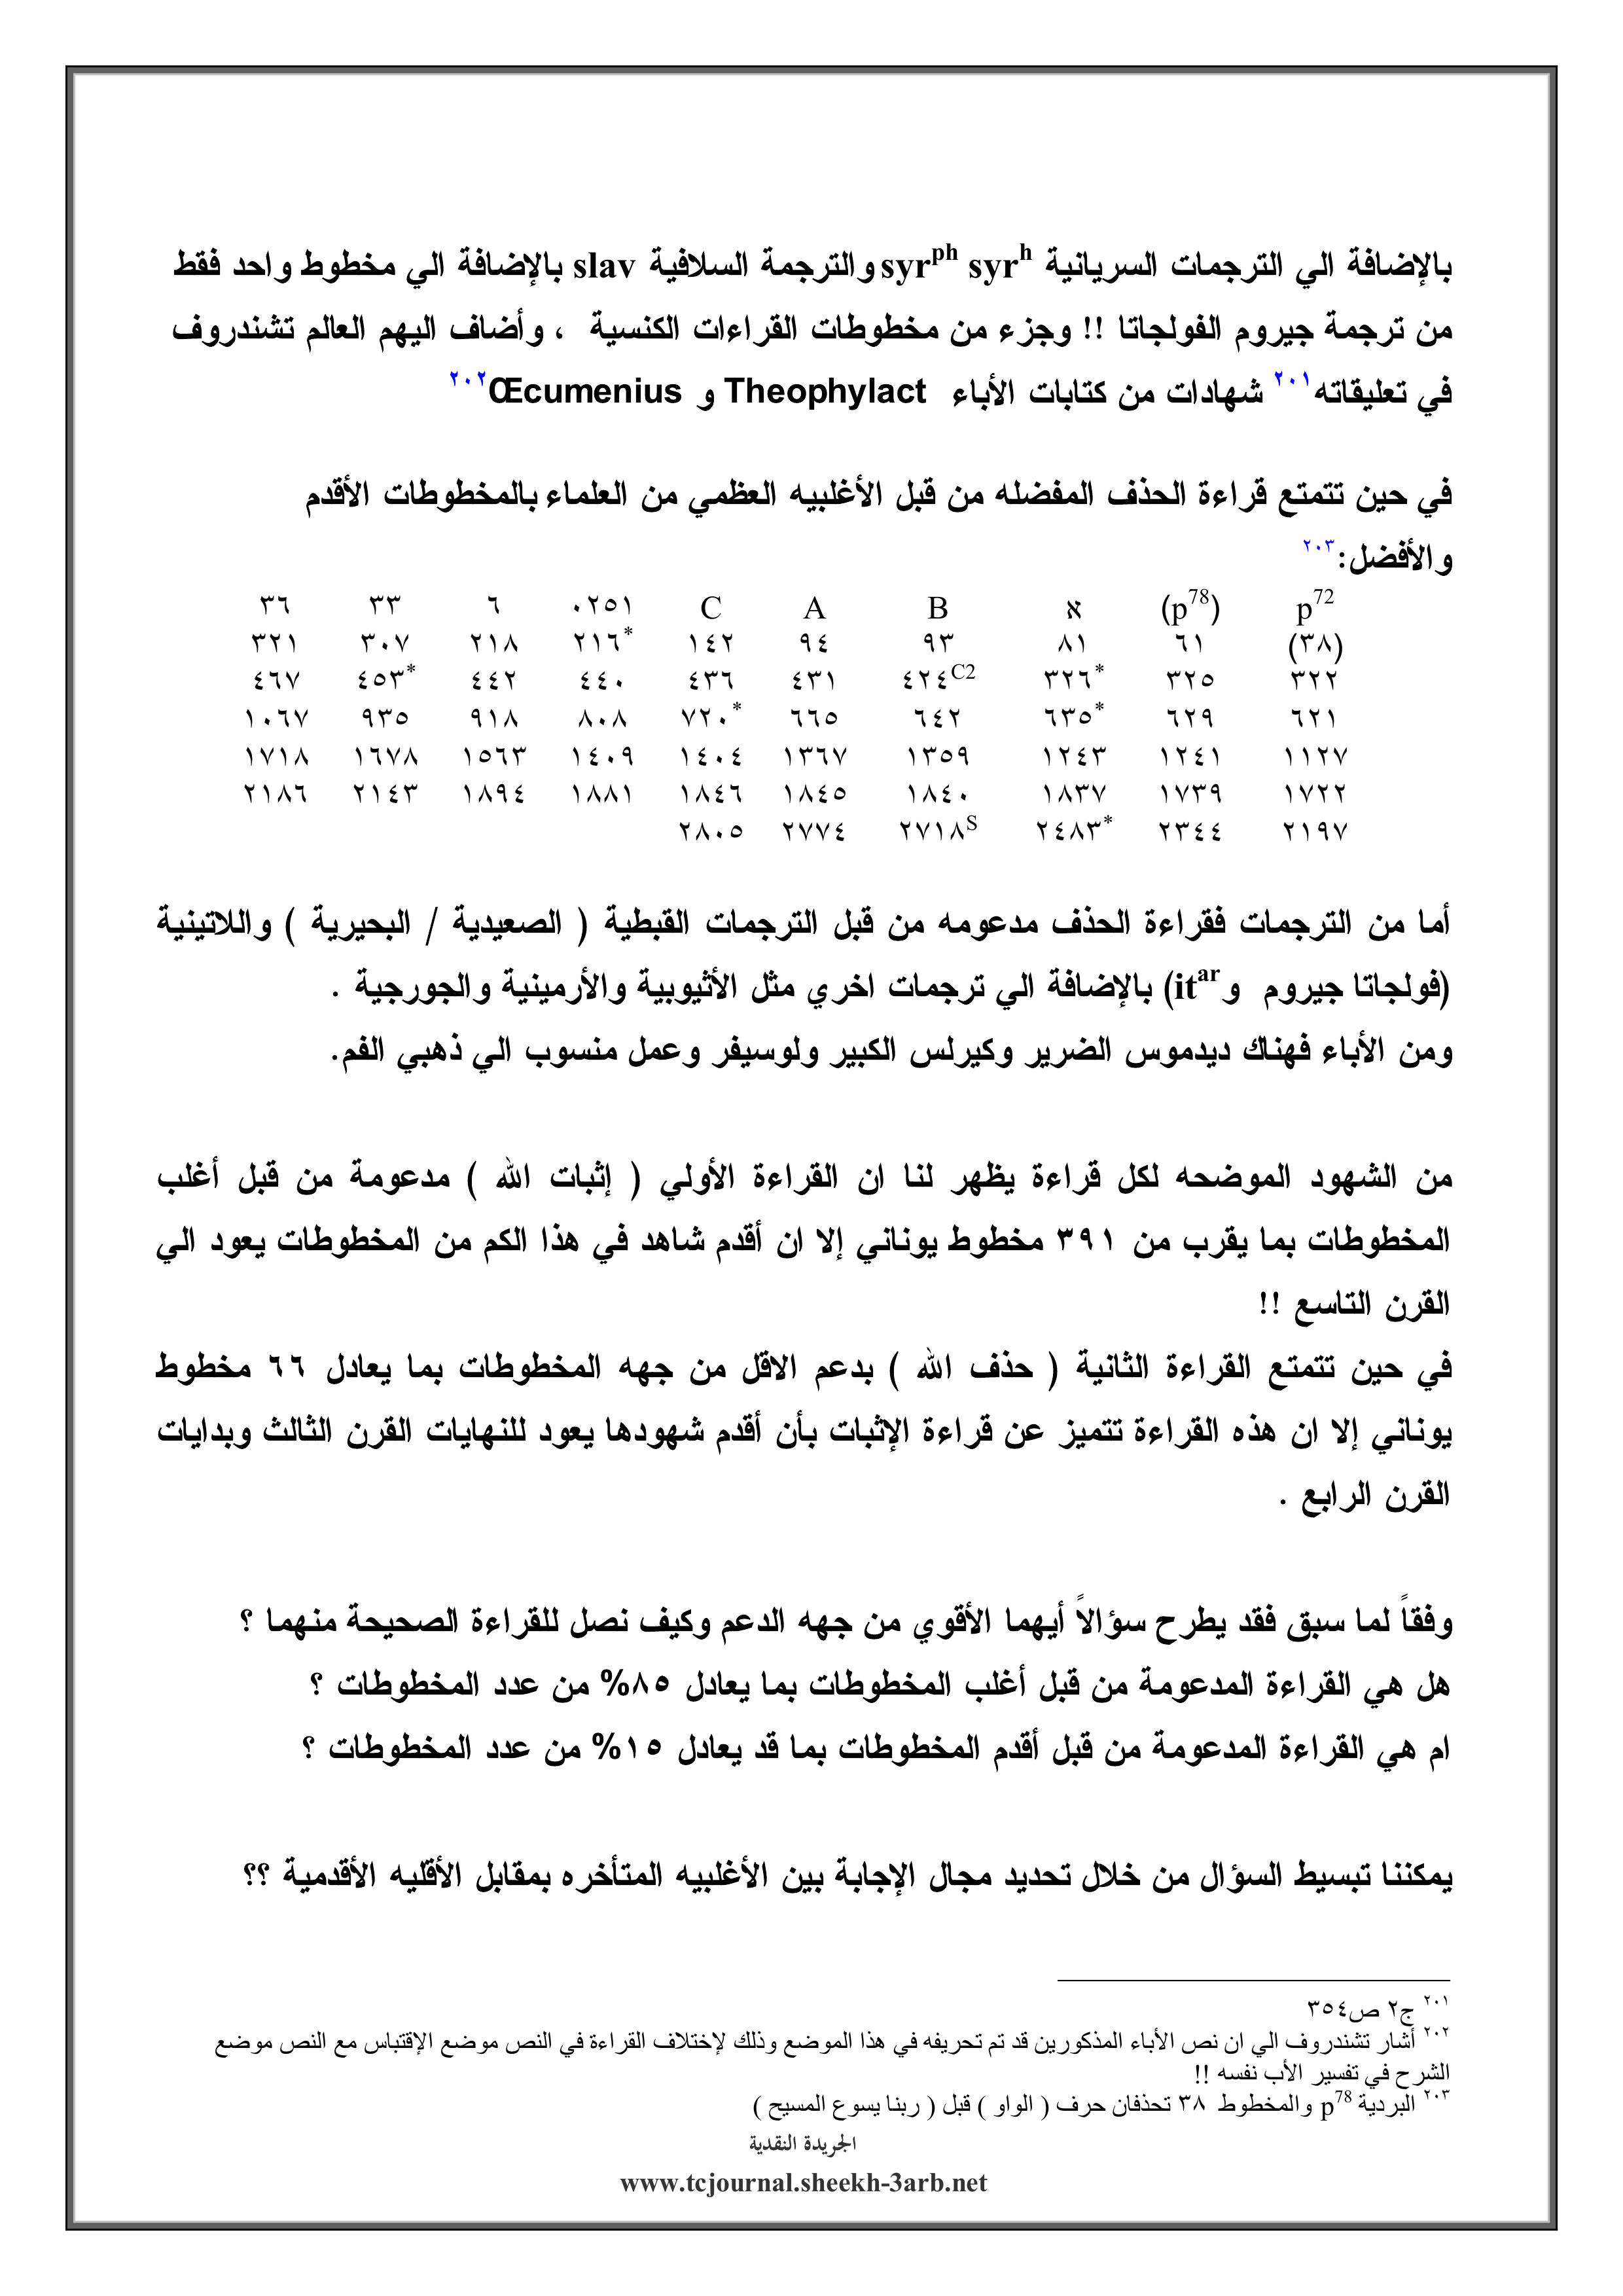 بالإضافة الي الترجمات السريانية syrph syrh والترجمة السلافية slav بالإضافة الي مخطوط واحد فقط
من ترجمة جيروم الفولجاتا !! وجزء من مخطوطات القراءات الكنسية ، وأضاف اليهم العالم تشندروف
في تعليقاته٢٠١ شهادات من كتابات الأباء Theophylact و Œcumenius٢٠٢
في حين تتمتع قراءة الحذف المفضله من قبل الأغلبيه العظمي من العلماء بالمخطوطات الأقدم
والأفضل:٢٠٣
p72 (p78) א B A C ٠٢٥١ ٦ ٣٣ ٣٦
(٣٨) ٦١ ٨١ ٩٣ ٩٤ ١٤٢ ٢١٦* ٢١٨ ٣٠٧ ٣٢١
٣٢٢ ٣٢٥ ٣٢٦* ٤٢٤C2 ٤٣١ ٤٣٦ ٤٤٠ ٤٤٢ ٤٥٣* ٤٦٧
٦٢١ ٦٢٩ ٦٣٥* ٦٤٢ ٦٦٥ ٧٢٠* ٨٠٨ ٩١٨ ٩٣٥ ١٠٦٧
١١٢٧ ١٢٤١ ١٢٤٣ ١٣٥٩ ١٣٦٧ ١٤٠٤ ١٤٠٩ ١٥٦٣ ١٦٧٨ ١٧١٨
١٧٢٢ ١٧٣٩ ١٨٣٧ ١٨٤٠ ١٨٤٥ ١٨٤٦ ١٨٨١ ١٨٩٤ ٢١٤٣ ٢١٨٦
٢١٩٧ ٢٣٤٤ ٢٤٨٣* ٢٧١٨S ٢٧٧٤ ٢٨٠٥
أما من الترجمات فقراءة الحذف مدعومه من قبل الترجمات القبطية ( الصعيدية / البحيرية ) واللاتينية
(فولجاتا جيروم و itar) بالإضافة الي ترجمات اخري مثل الأثيوبية والأرمينية والجورجية .
ومن الأباء فهناك ديدموس الضرير وكيرلس الكبير ولوسيفر وعمل منسوب الي ذهبي الفم.
من الشهود الموضحه لكل قراءة يظهر لنا ان القراءة الأولي ( إثبات الله ) مدعومة من قبل أغلب
المخطوطات بما يقرب من ٣٩١ مخطوط يوناني إلا ان أقدم شاهد في هذا الكم من المخطوطات يعود الي
القرن التاسع !!
في حين تتمتع القراءة الثانية ( حذف الله ) بدعم الاقل من جهه المخطوطات بما يعادل ٦٦ مخطوط
يوناني إلا ان هذه القراءة تتميز عن قراءة الإثبات بأن أقدم شهودها يعود للنهايات القرن الثالث وبدايات
القرن الرابع .
وفقاً لما سبق فقد يطرح سؤالاً أيهما الأقوي من جهه الدعم وكيف نصل للقراءة الصحيحة منهما ؟
هل هي القراءة المدعومة من قبل أغلب المخطوطات بما يعادل ٨٥% من عدد المخطوطات ؟
ام هي القراءة المدعومة من قبل أقدم المخطوطات بما قد يعادل ١٥% من عدد المخطوطات ؟
يمكننا تبسيط السؤال من خلال تحديد مجال الإجابة بين الأغلبيه المتأخره بمقابل الأقليه الأقدمية ؟؟
٢٠١ ج٢ ص٣٥٤
٢٠٢ أشار تشندروف الي ان نص الأباء المذكورين قد تم تحريفه في هذا الموضع وذلك لإختلاف القراءة في النص موضع الإقتباس مع النص موضع
الشرح في تفسير الأب نفسه !!
٢٠٣ البردية p78 والمخطوط ٣٨ تحذفان حرف ( الواو ) قبل ( ربنا يسوع المسيح )
الجريدة النقدية
www.tcjournal.sheekh-3arb.net